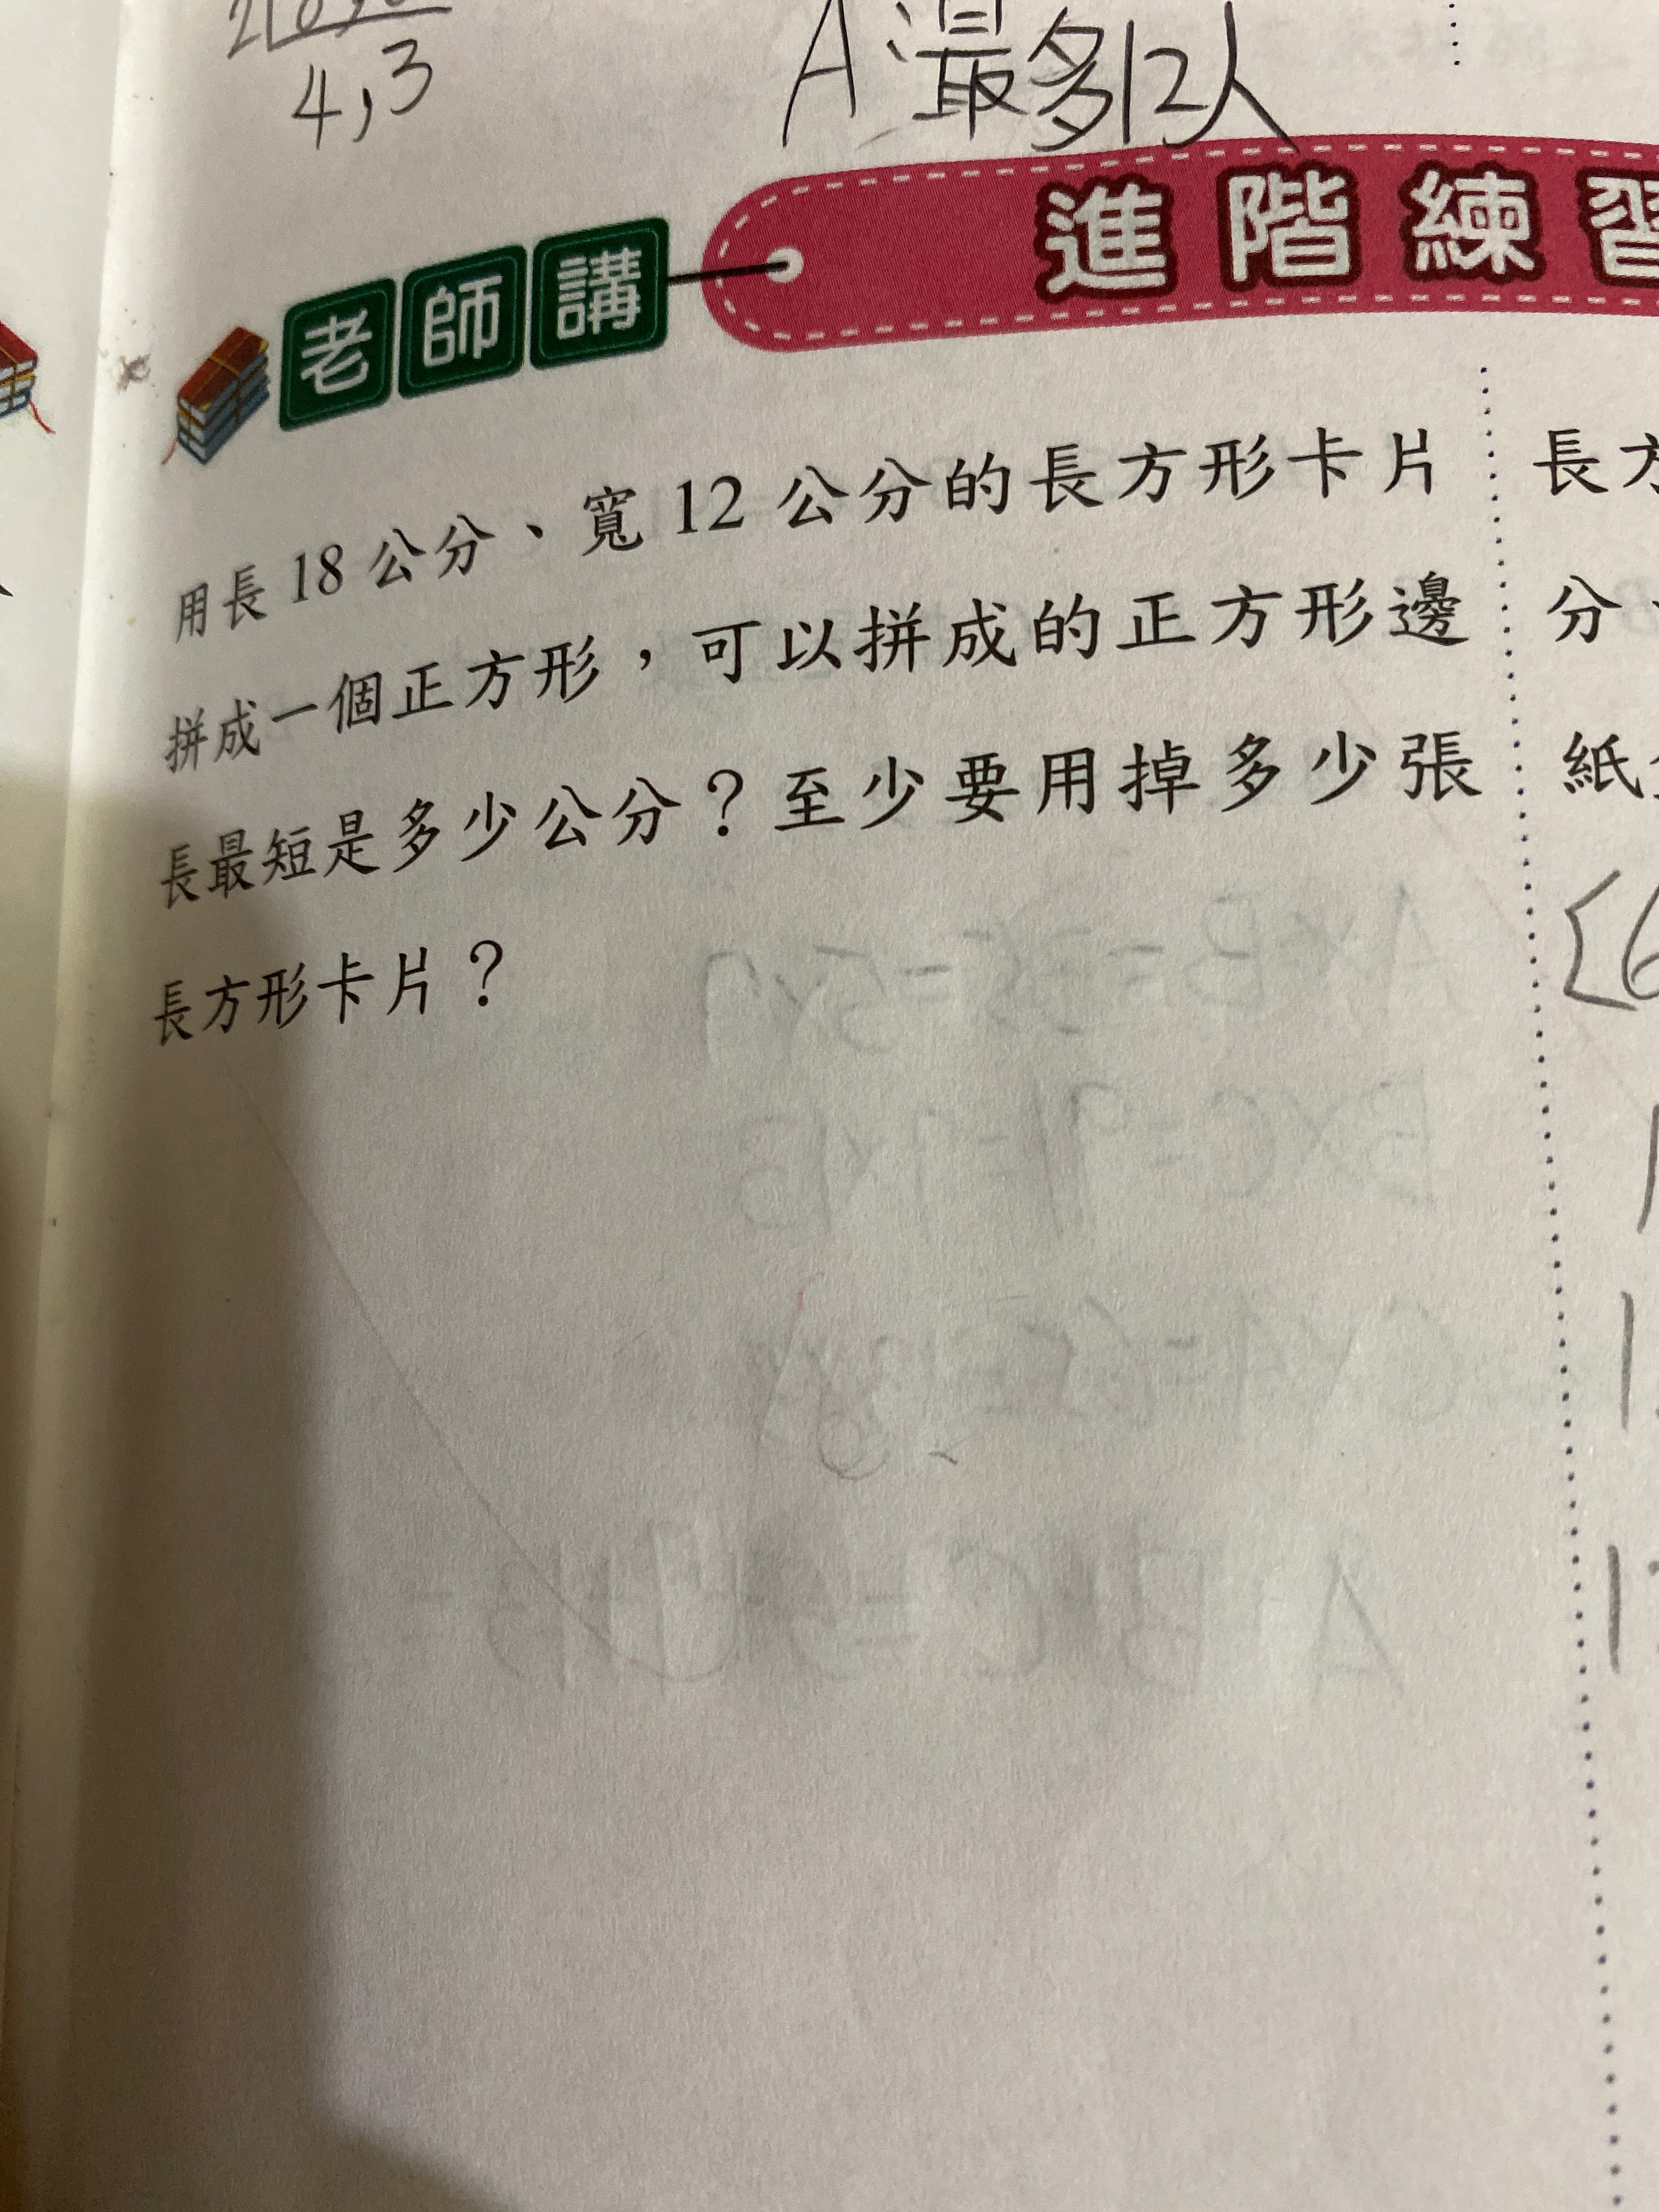 4,3
A:最多12人
老師講
進階練習
用長18公分、寬12公分的長方形卡片
拼成一個正方形,可以拼成的正方形邊
長最短是多少公分?至少要用掉多少張
長方形卡片?
長方
分、
紙